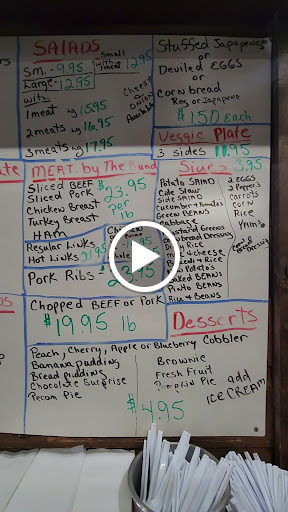 SALADS
Small
Sm. - 9.95
with
1 meat
1295
Large - 12.95
with
1 meat 15.95
2 meats 16.95
3 meats 17.95
Cheese
ONION
Stuffed Japapenos
or
Deviled EGGS
or
Corn bread
Reg or Japapeno
$1.50 each
Veggie Plate
3 sides 11.95
MEAT by The Pound
Sliced BEEF
Sliced Pork
Chicken Breast
Turkey Breast
HAM
23.95
per
lb
Regular Links
Hot Links 21.95
Pork Ribs
Chopped BEEF or Pork
$19.95 lb
Sides 3.95
Potato SALAD
Cole Slaw
Side SALAD
Cucumber & Tomatos
Green BEANS
Cabbage
Mustard Greens
Cornbread Dressing
Rice
Mac & cheese
Rice
Potato's
BEANS
Pinto BEANS
Rice & Beans
2 EGGS
2 Pepper's
Carrots
Corn
Rice
YAM's
Desserts
Peach, Cherry, Apple or Blueberry Cobbler
Banana pudding
Bread pudding
Chocolate Surprise
Pecan Pie
Brownie
Fresh Fruit
Pumpkin Pie
add
ICE CREAM
$4.95